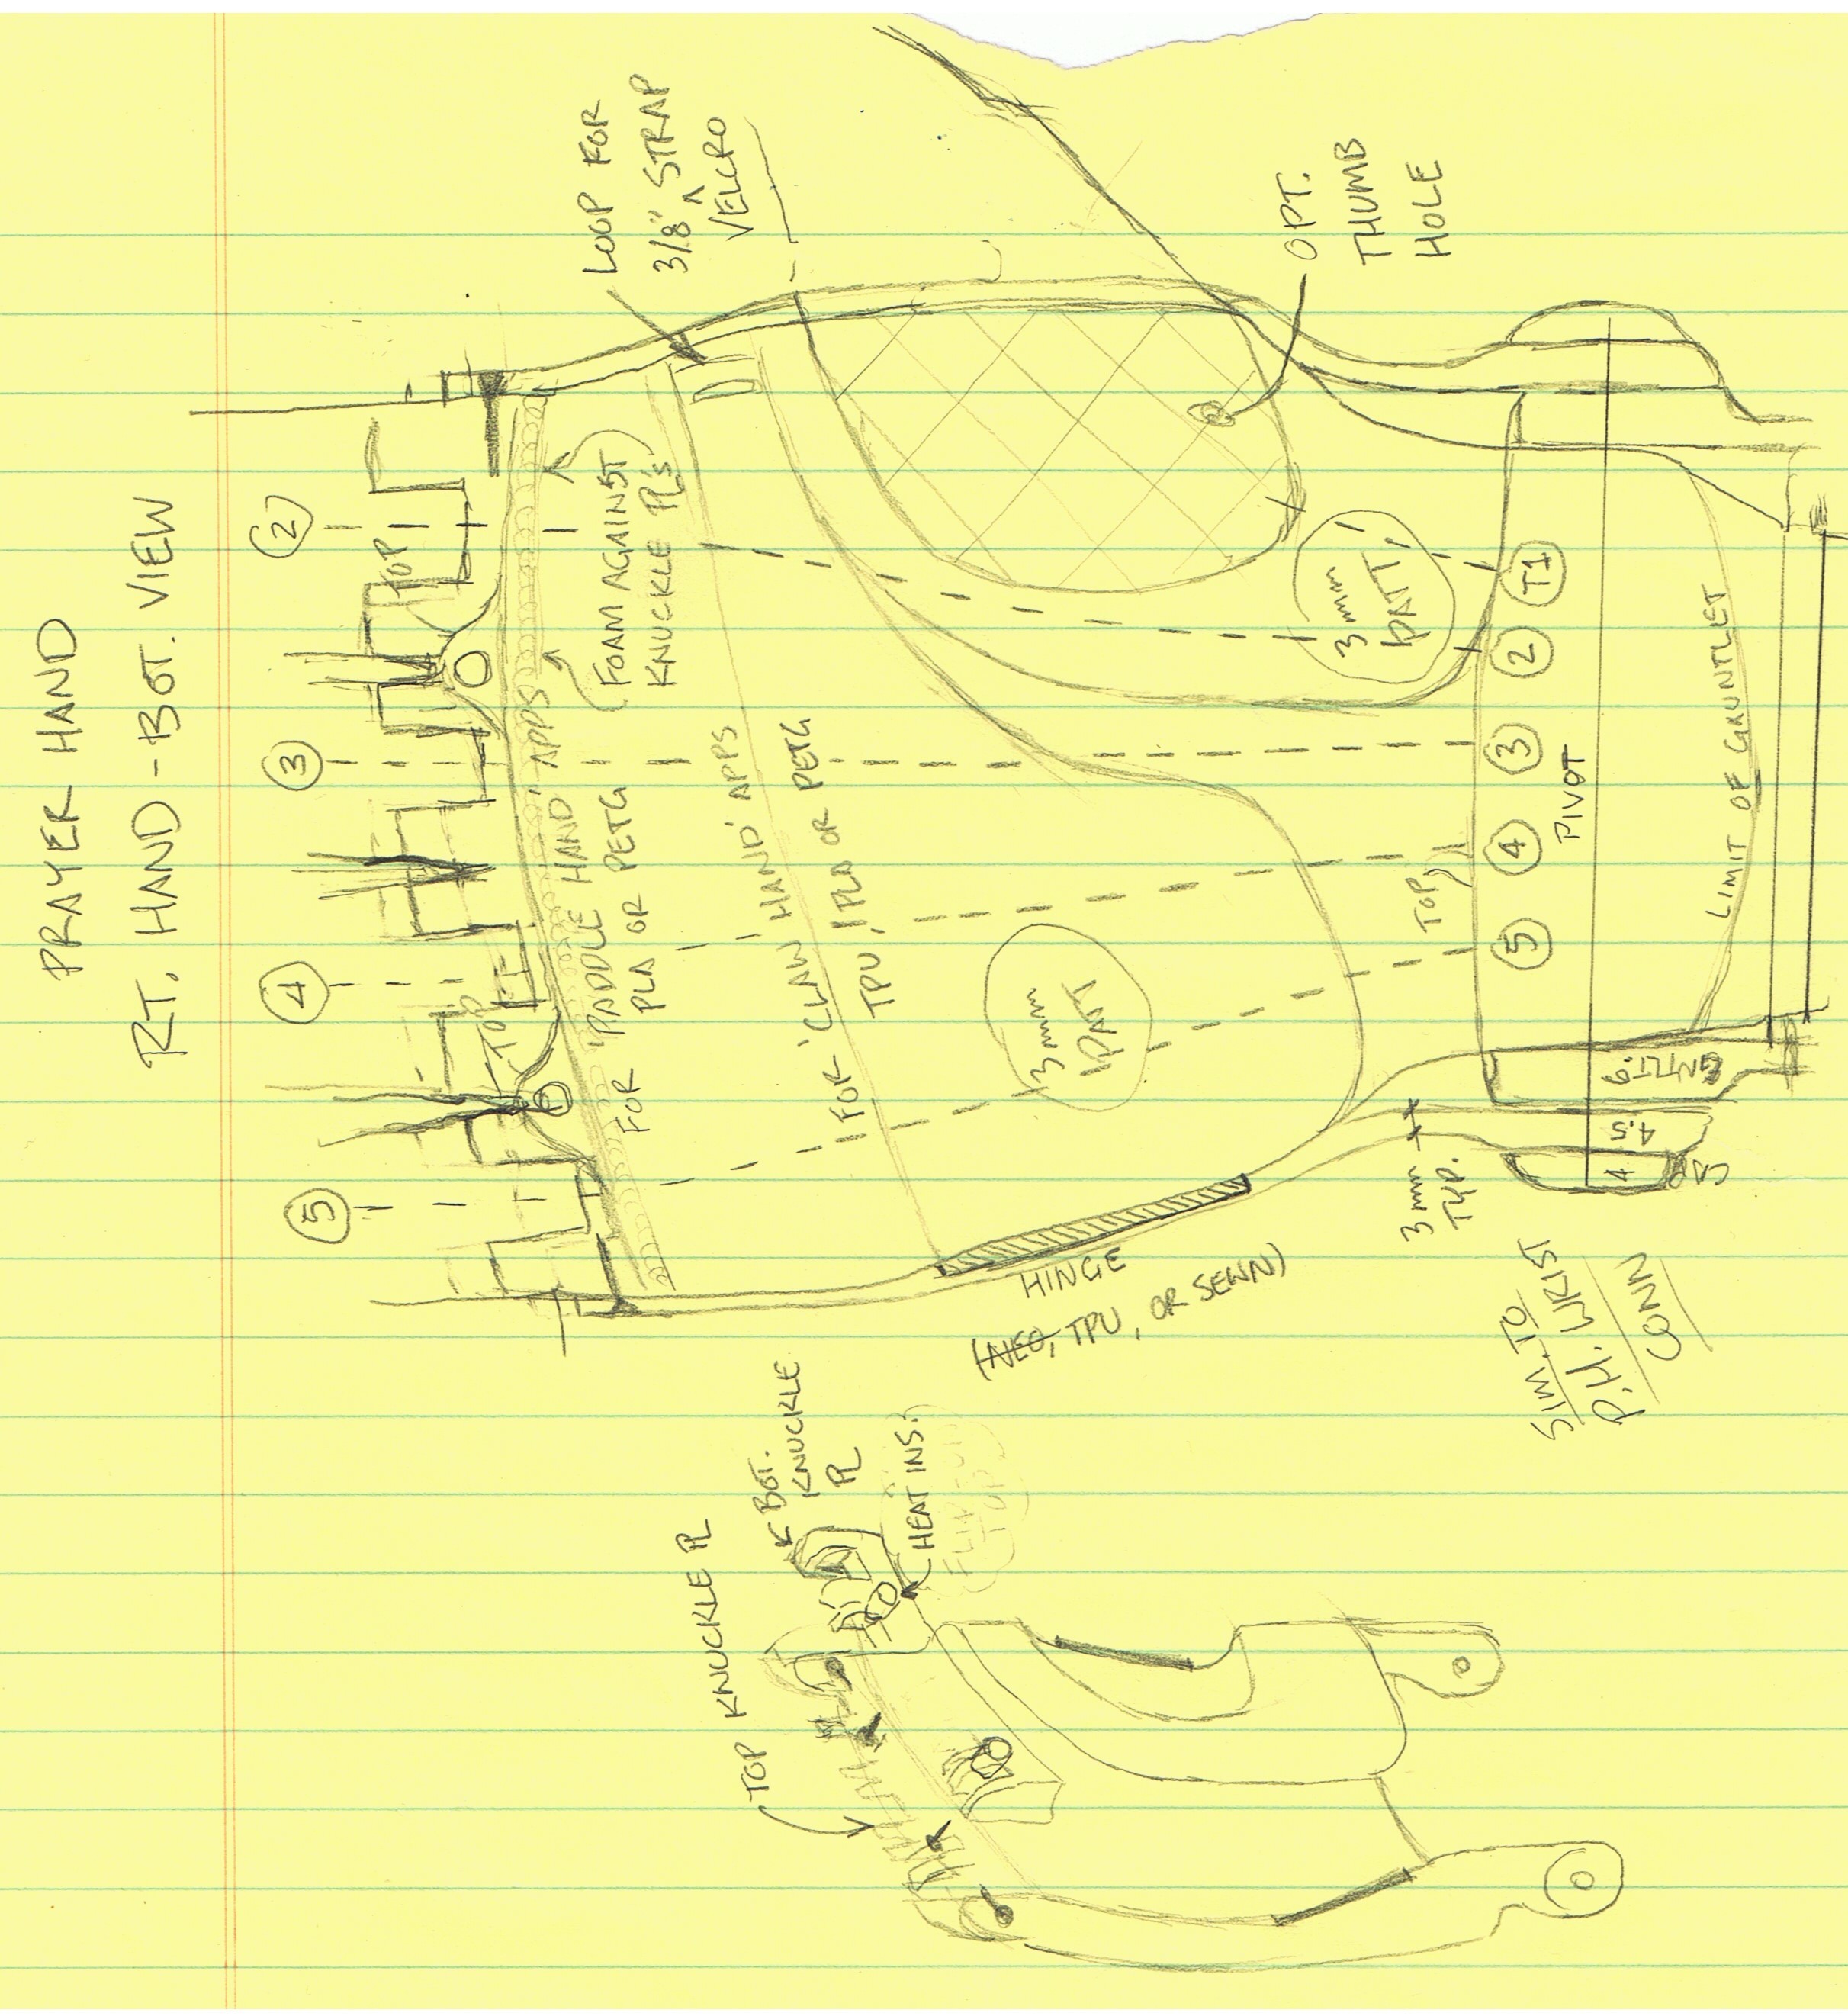 PRAYER HAND
RT. HAND - BOT. VIEW
2
3
4
5
TOP
TOP
LOOP FOR
3/8" STRAP
^
VELCRO
FOAM AGAINST
KNUCKLE PL'S
FOR 'PADDLE HAND' APPS
PLA OR PETG
FOR 'CLAW HAND' APPS
TPU, PLA OR PETG
OPT.
THUMB
HOLE
3mm
3mm
TOP
T1
2
3
4
5
PIVOT
LIMIT OF GAUNTLET
GNTLT.
6
4.5
4
3mm
TYP.
HINGE
(NEO, TPU, OR SEWN)
SIM. TO
P.H. WRIST
CONN
TOP KNUCKLE PL
BOT.
KNUCKLE
PL
HEAT INS.